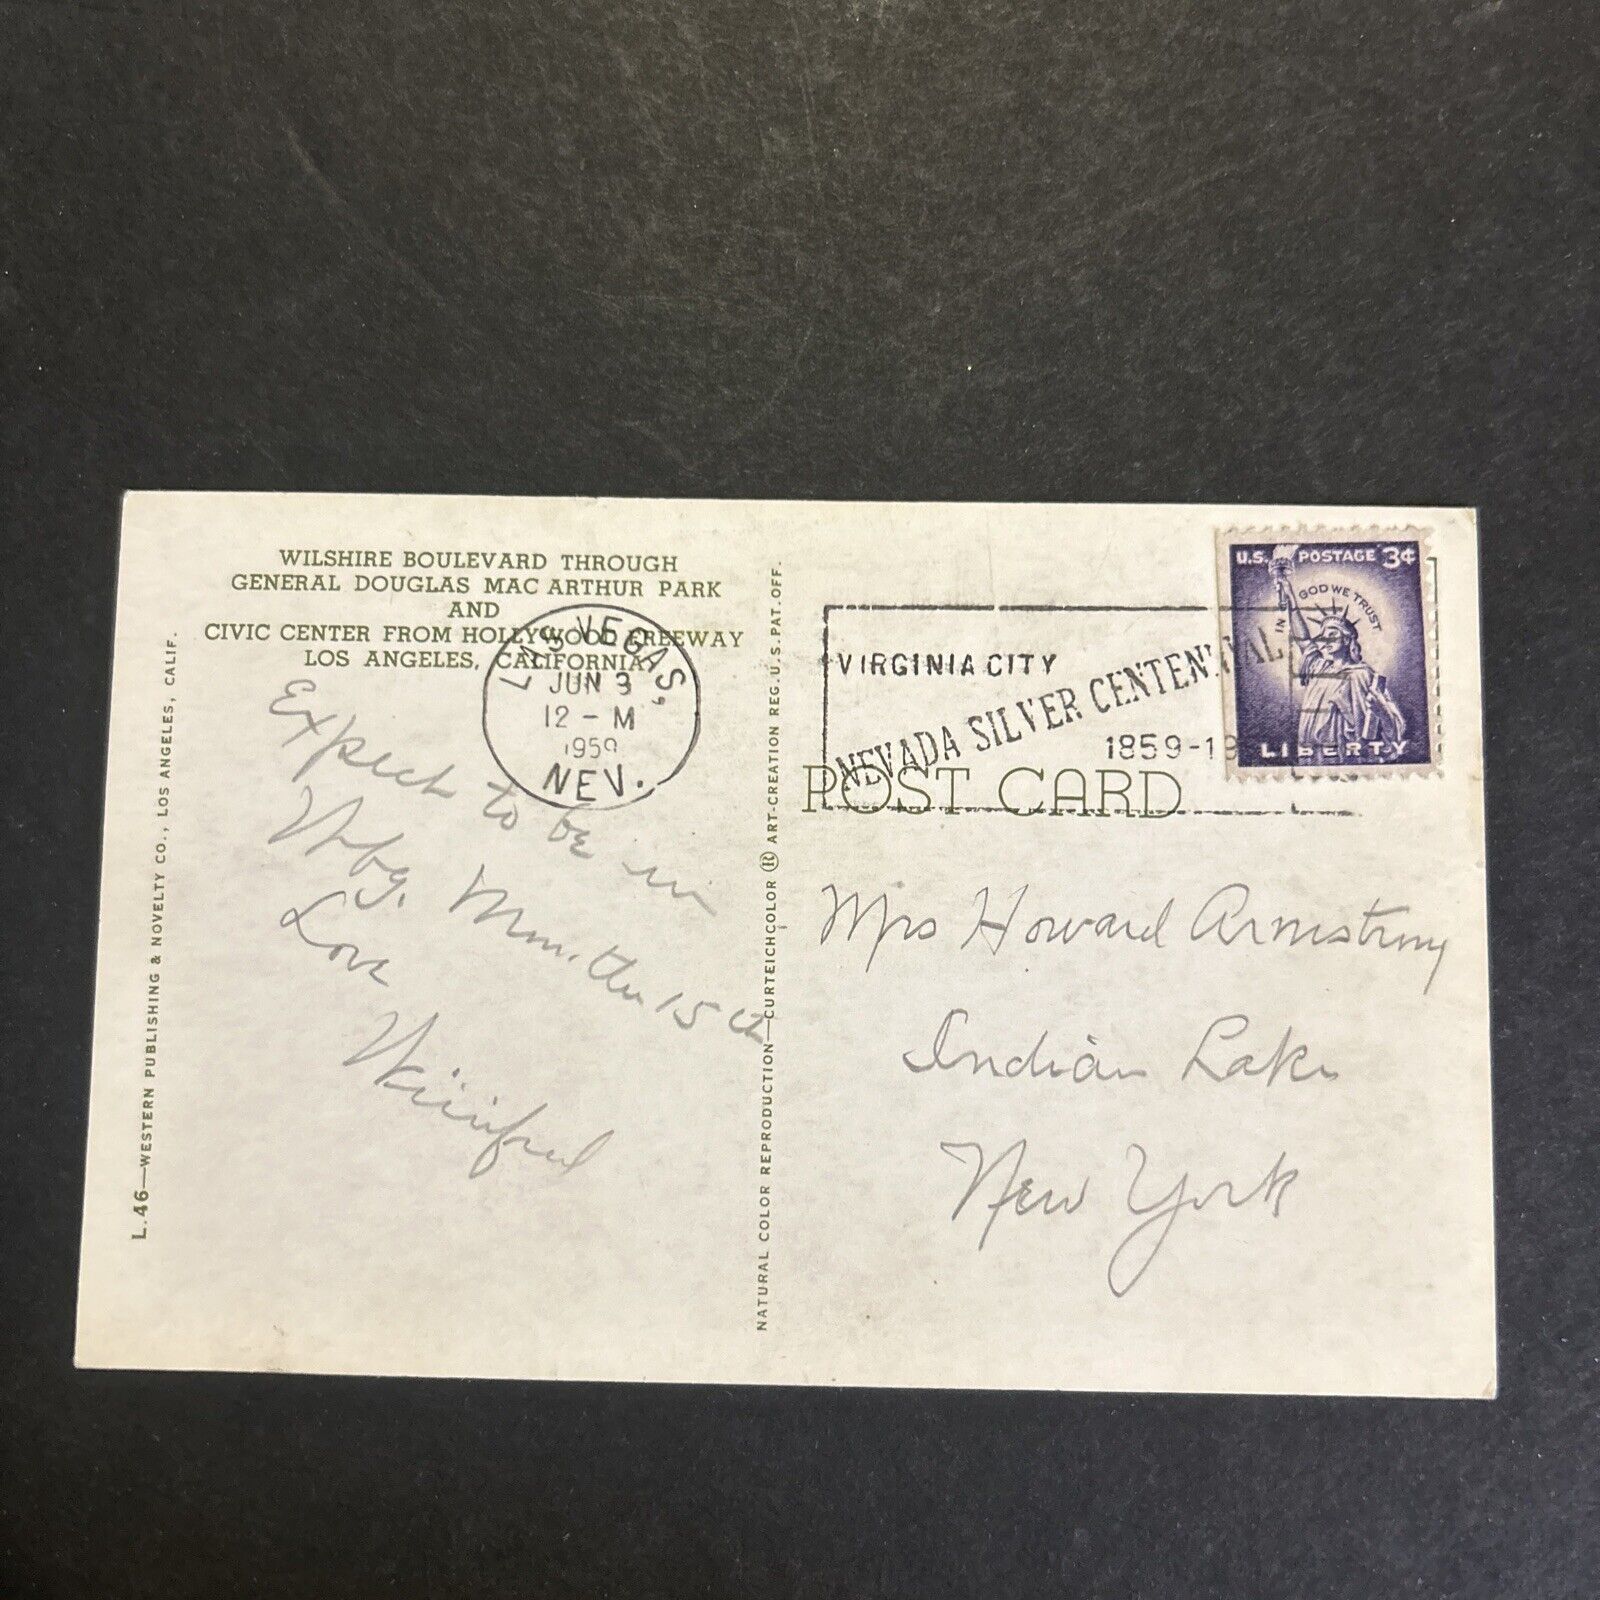 WILSHIRE BOULEVARD THROUGH
GENERAL DOUGLAS MAC ARTHUR PARK
AND
CIVIC CENTER FROM HOLLYWOOD FREEWAY
LOS ANGELES, CALIFORNIA
LAS VEGAS,
JUN 3
12 - M
1959
NEV.
Expect to be in
Wbg. Mon. the 15th
Love
Winifred
L.46—WESTERN PUBLISHING & NOVELTY CO., LOS ANGELES, CALIF.
NATURAL COLOR REPRODUCTION—CURTEICHCOLOR ® ART-CREATION REG. U.S. PAT. OFF.
VIRGINIA CITY
NEVADA SILVER CENTENNIAL
1859-19
U.S. POSTAGE 3¢
IN GOD WE TRUST
LIBERTY
POST CARD
Mrs Howard Armstrong
Indian Lake
New York